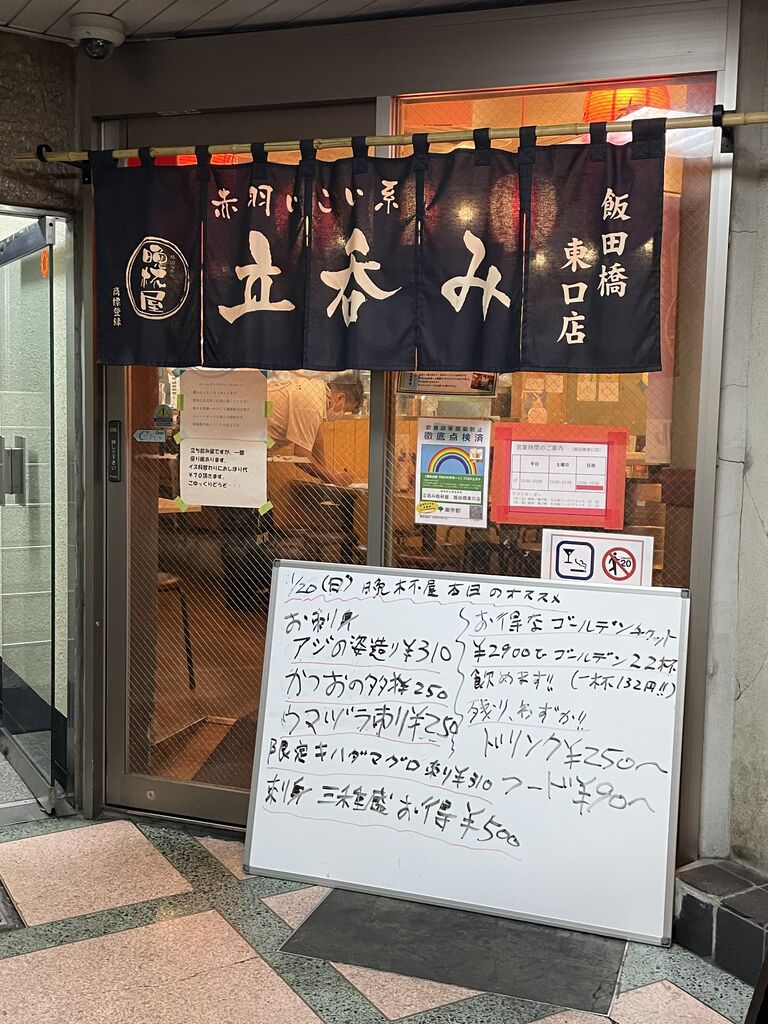 赤羽いこい系
立呑み
飯田橋
東口店
晩杯屋
商標登録
立ち飲み屋ですが、一部
座り席あります。
イス料替わりにおしぼり代
¥70頂きます。
ごゆっくりどうぞ~!!
徹底点検済
立呑み晩杯屋 飯田橋東口店
東京都
営業時間のご案内 (飯田橋東口店)
平日 土曜日 日祝
20
1/20(日) 晩杯屋 本日のオススメ
お刺身
アジの姿造り¥310
かつおのタタキ¥250
ウマヅラ刺り¥250
限定キハダマグロ刺り¥310
刺身 三種盛 お得¥500
お得なゴールデンチケット
¥2900でゴールデン22杯
飲めます!! (一杯132円!!)
残り、わずか!!
ドリンク¥250~
フード¥90~